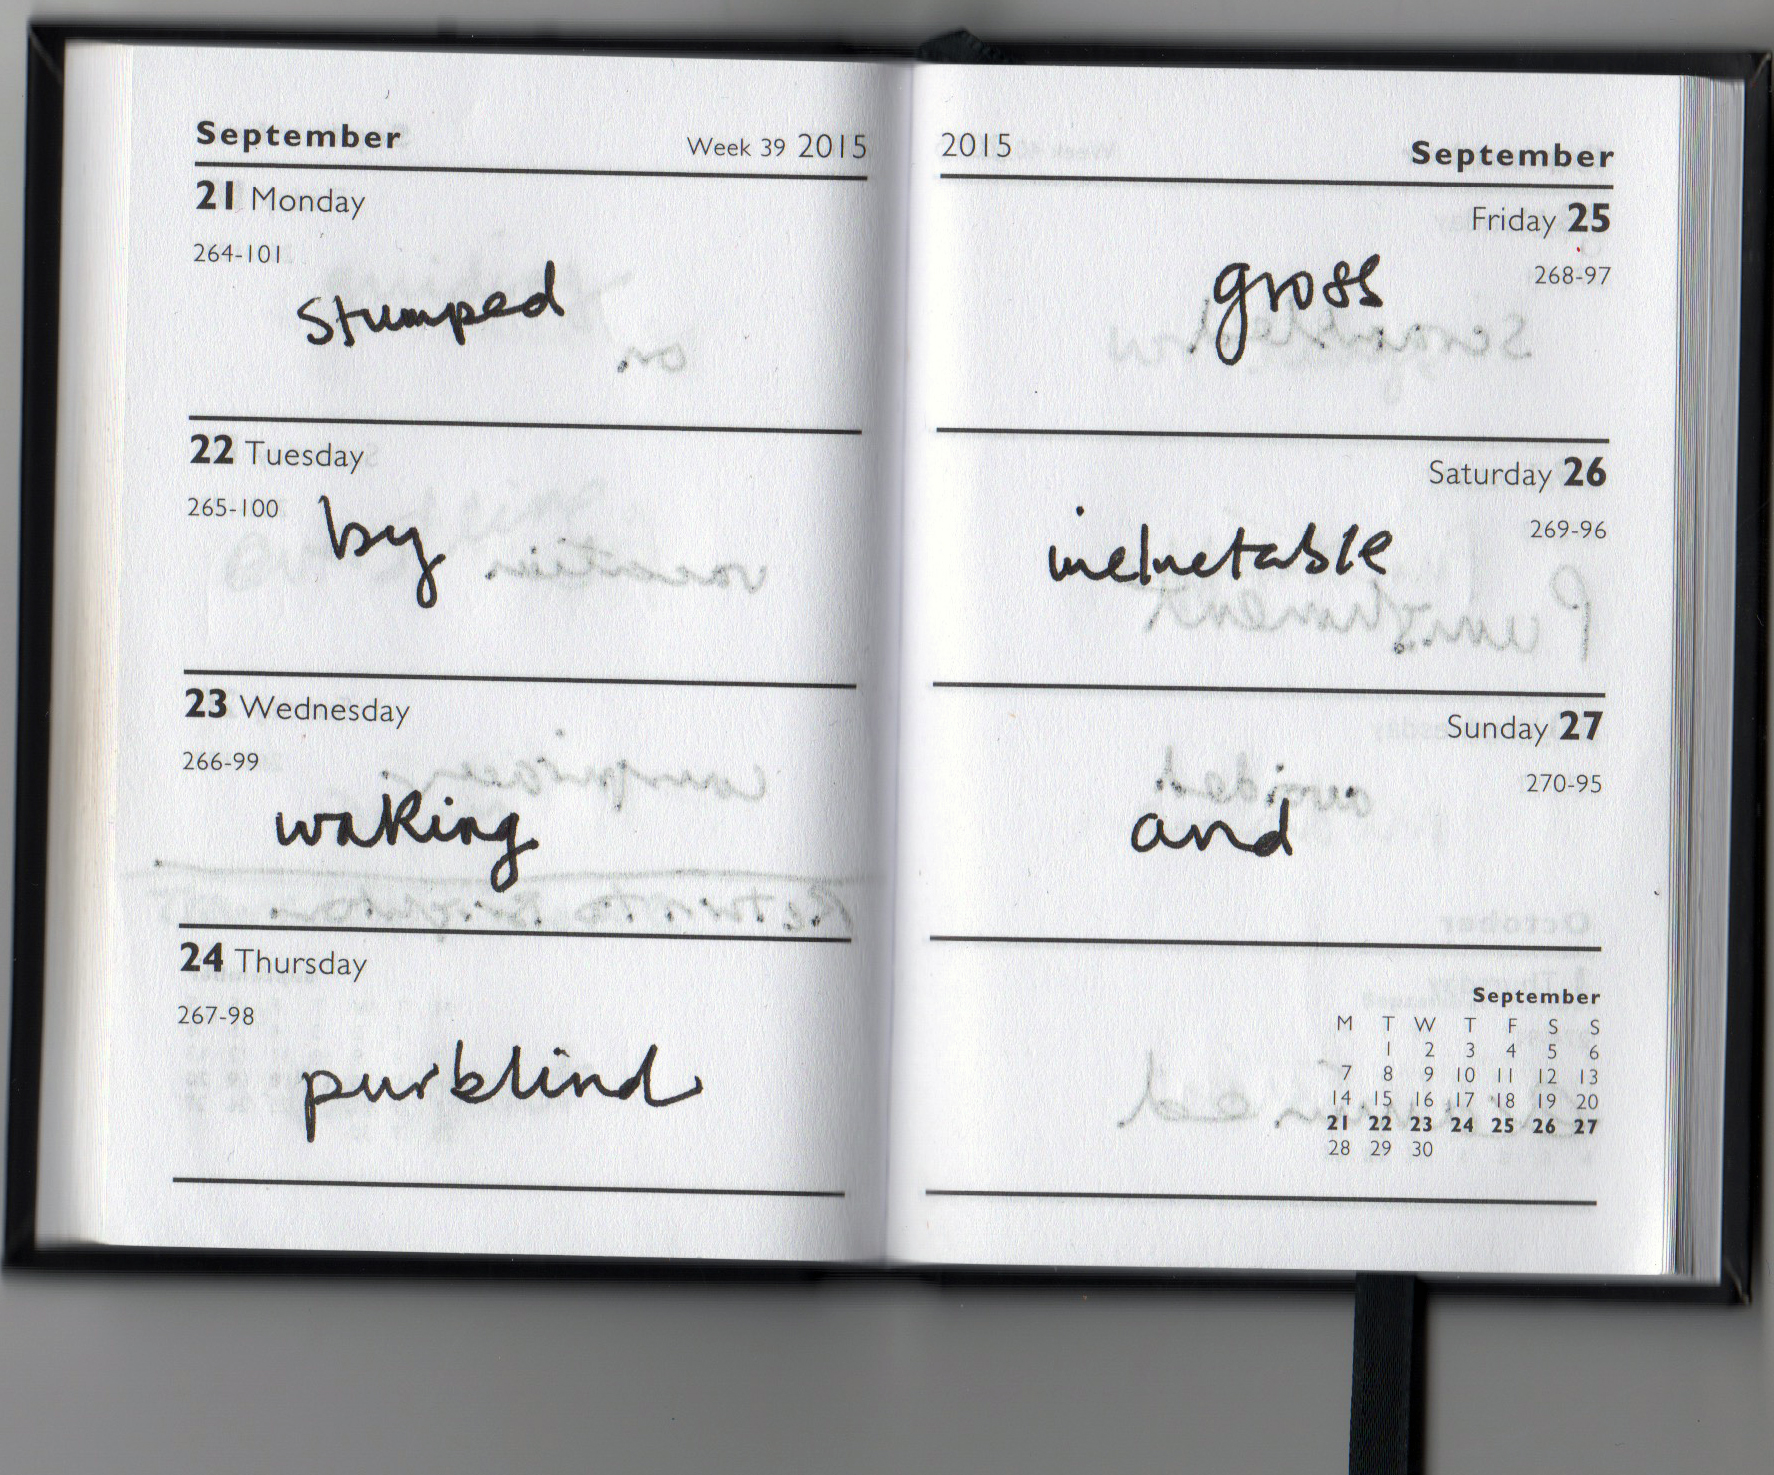 September Week 39 2015
21 Monday
264-101
stumped
22 Tuesday
265-100
by
23 Wednesday
266-99
waking
24 Thursday
267-98
purblind
2015 September
Friday 25
268-97
gross
Saturday 26
269-96
inelnetable
Sunday 27
270-95
and
September
M T W T F S S
1 2 3 4 5 6
7 8 9 10 11 12 13
14 15 16 17 18 19 20
21 22 23 24 25 26 27
28 29 30